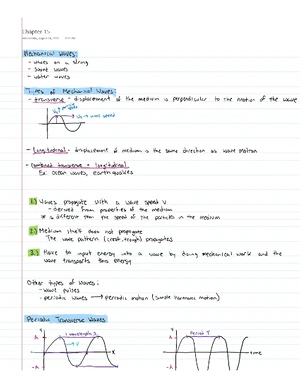 Chapter 15
Mechanical Waves:
- waves on a string
- sound waves
- water waves
Types of Mechanical Waves:
- transverse - displacement of the medium is perpendicular to the motion of the wave
wave speed
- Longitudinal - displacement of medium is the same direction as wave motion
- combined transverse + longitudinal
Ex: ocean waves, earthquakes
1.) Waves propagate with a wave speed v
- derived from properties of the medium
is different than the speed of the particles in the medium
2.) Medium itself does not propagate
The wave pattern (crest, trough) propagates
3.) Have to input energy into a wave by doing mechanical work and the
wave transports this energy
Other types of waves:
- wave pulses
- periodic waves → periodic motion (simple harmonic motion)
Periodic Transverse Waves
Period T
A
A
x
time
-A
-A